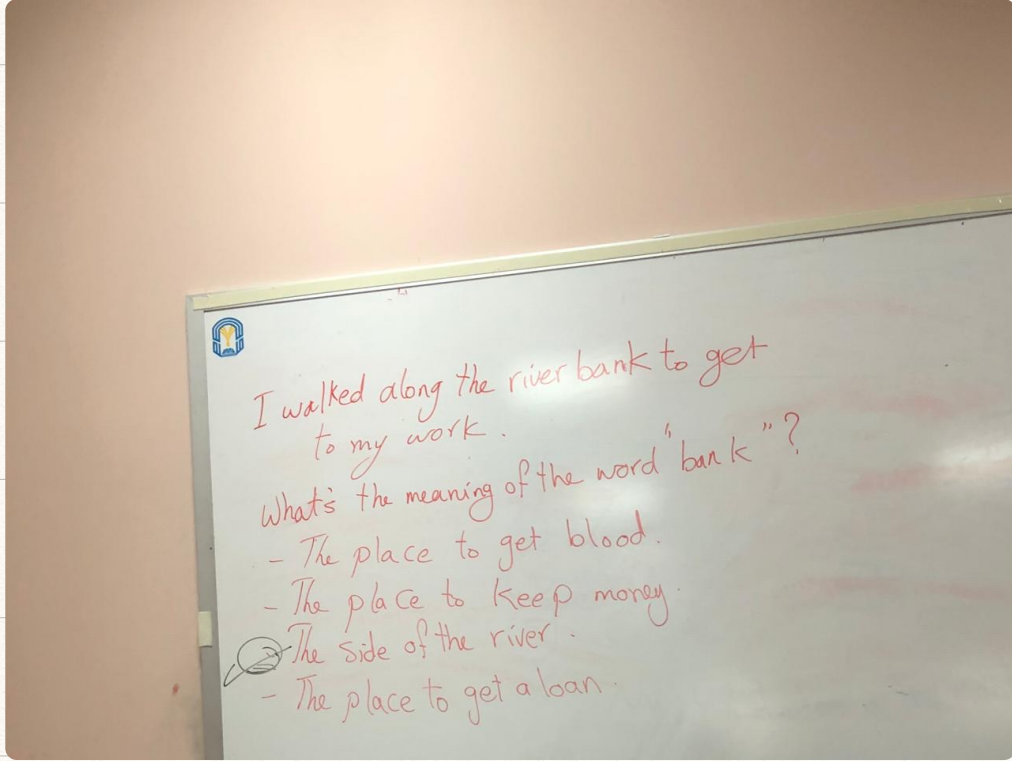 I walked along the river bank to get
to my work.
What's the meaning of the word "bank"?
- The place to get blood.
- The place to keep money.
- The side of the river.
- The place to get a loan.